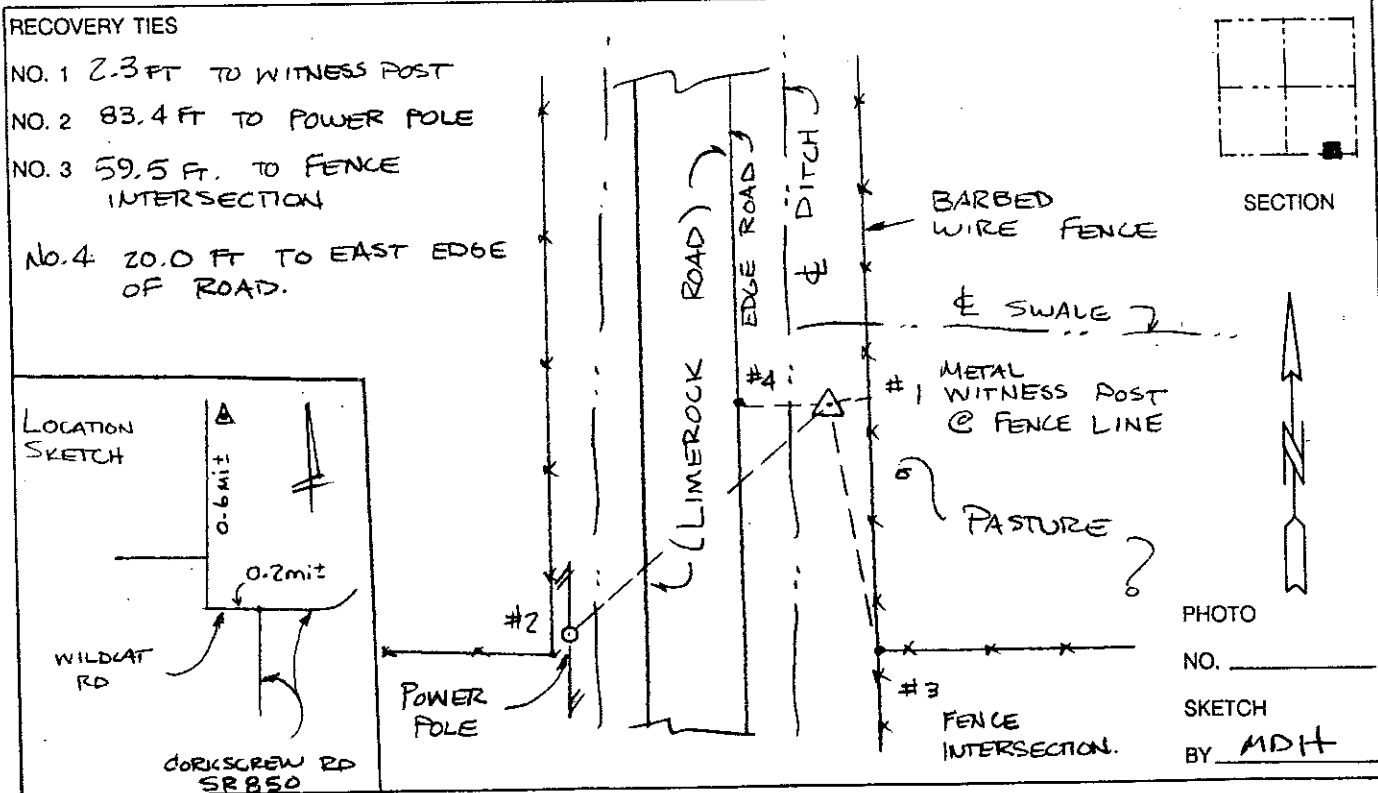 RECOVERY TIES
NO. 1 2.3 FT TO WITNESS POST
NO. 2 83.4 FT TO POWER POLE
NO. 3 59.5 FT. TO FENCE
INTERSECTION
No. 4 20.0 FT TO EAST EDGE
OF ROAD.
LOCATION
SKETCH
0.6mi±
0.2mi±
WILDCAT
RD
CORKSCREW RD
SR 850
(LIMEROCK ROAD)
EDGE ROAD
℄ DITCH
BARBED
WIRE FENCE
℄ SWALE
#4
#1 METAL
WITNESS POST
@ FENCE LINE
PASTURE
#2
POWER
POLE
#3
FENCE
INTERSECTION.
SECTION
N
PHOTO
NO.
SKETCH
BY MDH